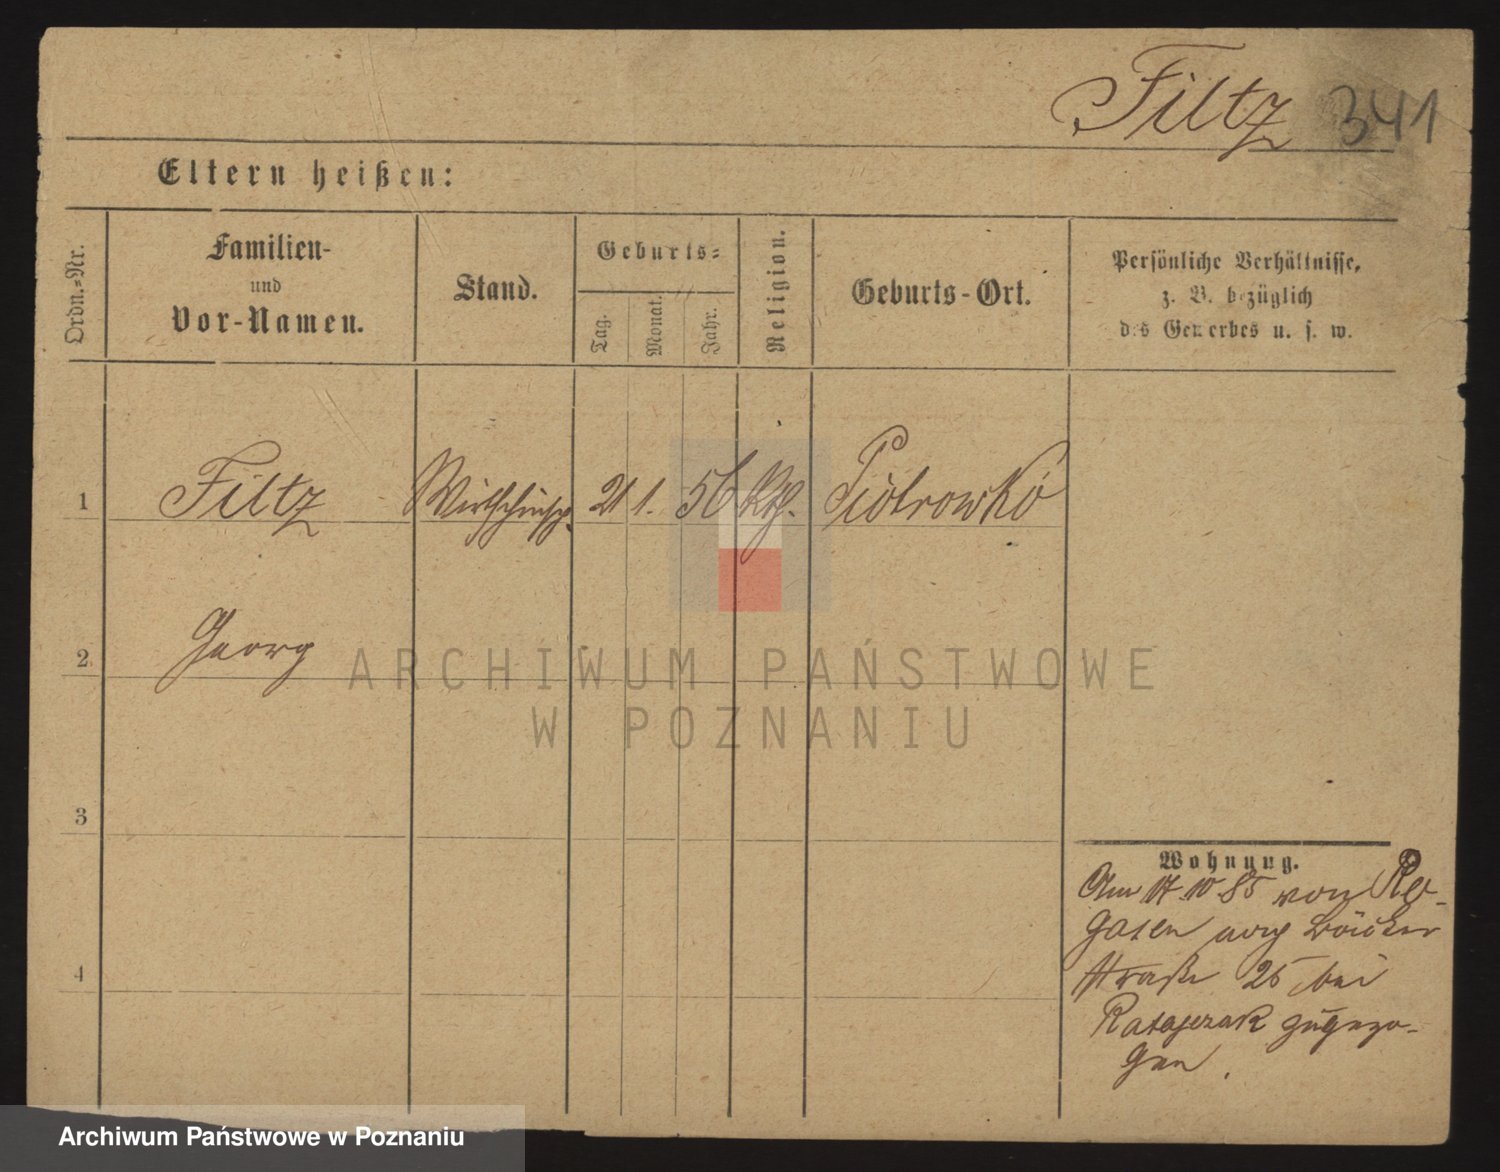 Filtz 341
Eltern heißen:
Ordn.-Nr.
Familien-
und
Vor-Namen.
Stand.
Geburts-
Tag.
Monat.
Jahr.
Religion.
Geburts-Ort.
Persönliche Verhältnisse,
z. B. bezüglich
des Gewerbes u. s. w.
1 Filtz Wirthschinsp. 21 1. 56 Kth. Piotrowkó
2. Georg
3
4
Wohnung.
Am 17.10.85 von Ro-
gasen nach Bäcker
straße 25 bei
Ratajczak zugezo-
gen.
ARCHIWUM PAŃSTWOWE
W POZNANIU
Archiwum Państwowe w Poznaniu